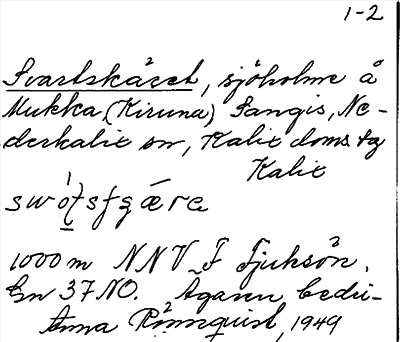 1-2
Svartskäret, sjöholme å
Mukka (Kiruna) Sangis, Ne-
derkalix sn, Kalix doms tg
Kalix
1000 m NNV F Fjuksön.
En 37 NO. Ägaren bedri-
Anna Rönnquist, 1949